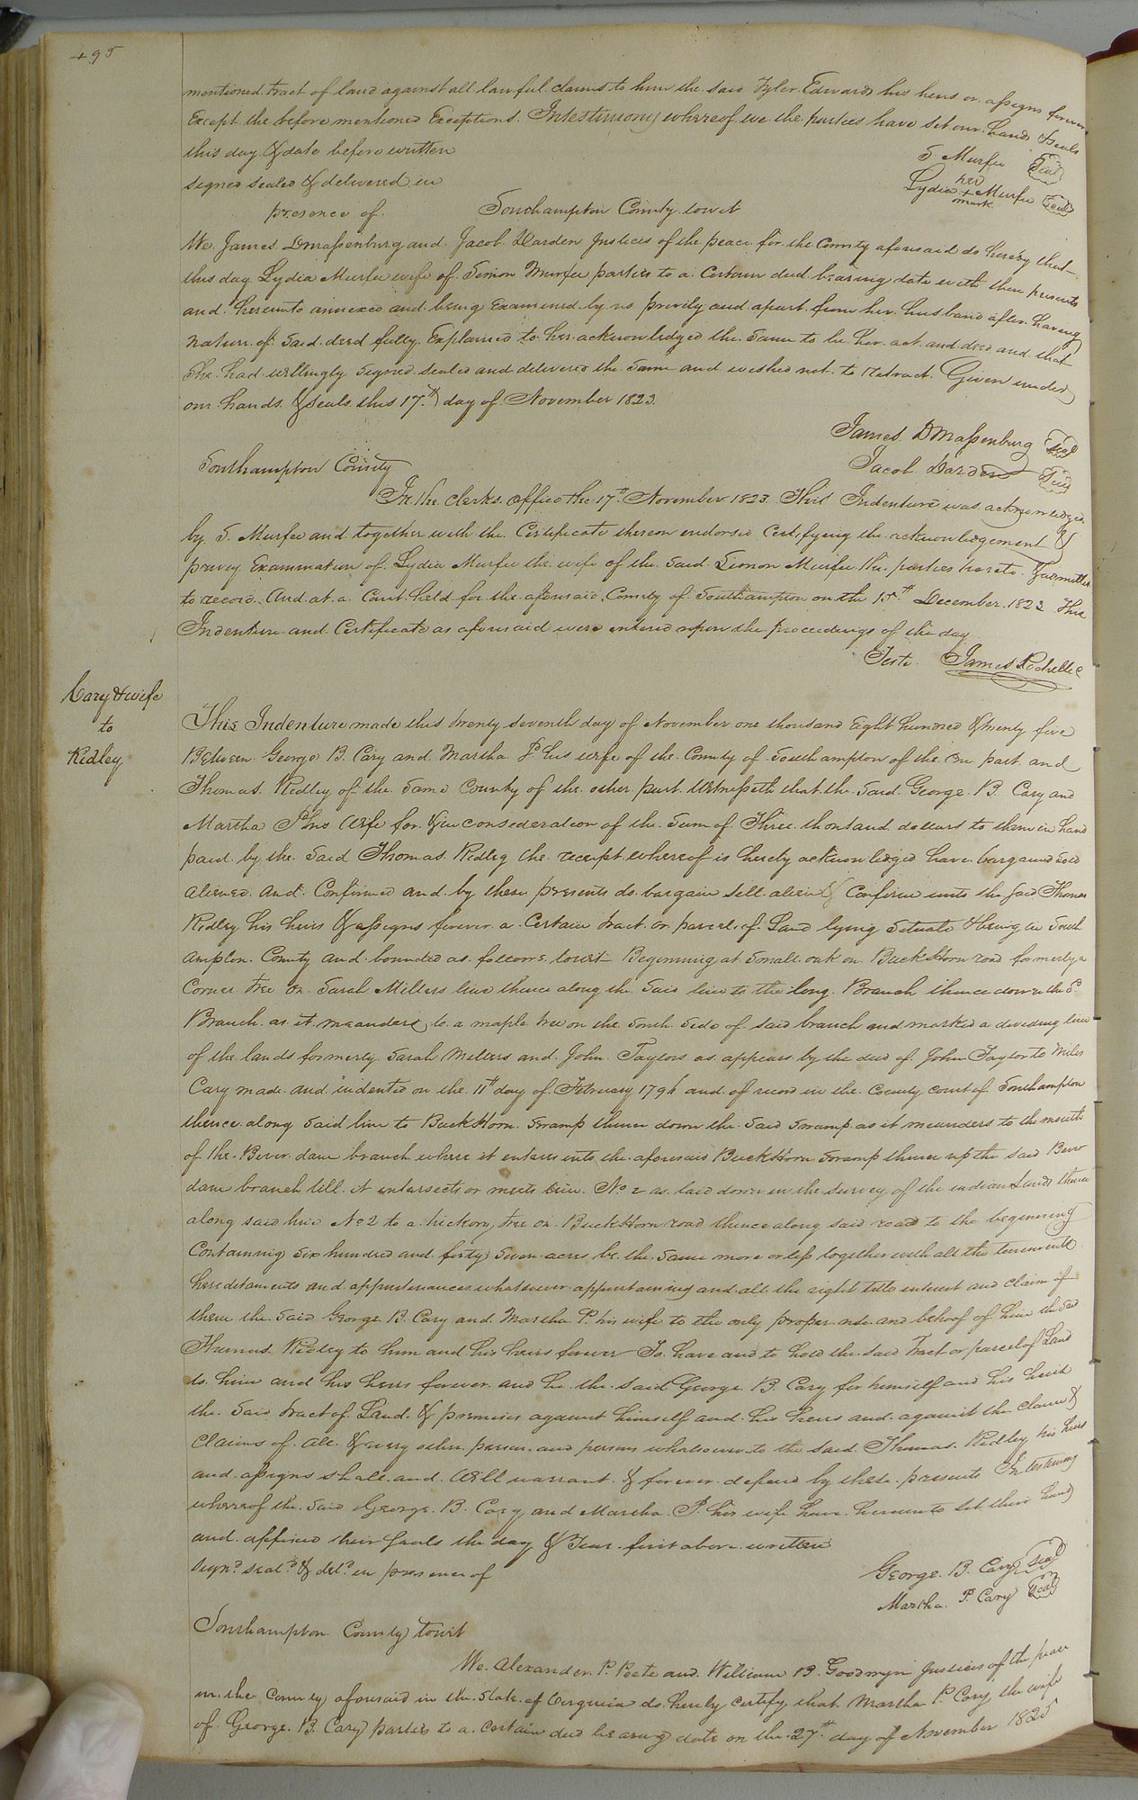 495
mentioned tract of land against all lawful claims to him the said Tyler Edwards his heirs or assigns forever
Except the before mentioned Exceptions. Intestimony whereof we the parties have set our hands & seals
this day & date before written
S Murfee Seal
signed sealed & delivered in
Lydia her + mark Murfee Seal
presence of
Southampton County towit
We James D Massenburg and Jacob Darden Justices of the peace for the County aforesaid do hereby that
this day Lydia Murfee wife of Simon Murfee parties to a Certain deed bearing date with these presents
and hereunto annexed and being Examined by us privily and apart from her husband after having
nature of said deed fully Explained to her acknowledged the same to be her act and deed and that
She had willingly signed sealed and delivered the same and wished not to Retract. Given under
our hands & seals this 17th day of November 1823.
James D Massenburg Seal
Jacob Darden Seal
Southampton County
In the clerks office the 17th November 1823. This Indenture was acknowledged
by S. Murfee and together with the Certificate thereon endorsed Certifying the acknowledgement &
privey Examination of Lydia Murfee the wife of the said Simon Murfee the parties hereto & admitted
to record. And at a Court held for the aforesaid County of Southampton on the 15th December 1823 This
Indenture and Certificate as aforesaid were entered upon the proceedings of the day
Teste James Rochelle C
Cary & wife
to
Ridley
This Indenture made this twenty seventh day of November one thousand Eight hundred & twenty five
Between George B. Cary and Martha P his wife of the County of Southampton of the One part and
Thomas Ridley of the Same County of the other part Witnesseth that the Said George B. Cary and
Martha P his Wife for & in consideration of the Sum of Three thousand dollars to them in hand
paid by the Said Thomas Ridley the receipt whereof is hereby acknowledged have bargained sold
aliened and Confirmed and by these presents do bargain sell alien & Confirm unto the said Thomas
Ridley his heirs & assigns forever a Certain tract or parcel of Land lying Situate & being in South
ampton County and bounded as follows towit Beginning at Small oak on Buck Horn road formerly a
Corner tree on Sarah Millers line thence along the Said line to the long Branch thence down the Sd.
Branch as it meanders to a maple tree on the South Side of said branch and marked a dividing line
of the lands formerly Sarah Millers and John Taylors as appears by the deed of John Taylor to Miles
Cary made and indented on the 11th day of February 1796 and of record in the County court of Southampton
thence along Said line to Buck Horn Swamp thence down the Said Swamp as it meanders to the mouth
of the Bever dam branch where it enters into the aforesaid Buck Horn Swamp thence up the said Bever
dam branch till it intersects or meets line No 2 as laid down in the Survey of the indian Lands thence
along said line No 2 to a hickory tree on Buck Horn road thence along said road to the beginning
Containing Six hundred and forty Seven acres be the Same more or less together with all the tenements
hereditaments and appurtenances whatsoever appertaining and all the right title interest and claim of
them the Said George B. Cary and Martha P. his wife to the only proper use and behoof of him the Said
Thomas Ridley to him and his heirs forever To have and to hold the Said Tract or parcel of Land
to him and his heirs forever and he the Said George B. Cary for himself and his heirs
the Said tract of Land & premises against himself and his heirs and against the claim &
Claims of all & every other person and persons whatsoever to the said Thomas Ridley his heirs
and assigns shall and Will warrant & forever defend by these presents Intestimony
whereof the Said George B. Cary and Martha P. his wife have hereunto set their hands
and affixed their Seals the day & Year first above written
Sign'd seal'd & del'd in presence of
George B. Cary Seal
Martha P. Cary Seal
Southampton County towit
We Alexander P. Peete and William B. Goodwyn Justices of the peace
in the County aforesaid in the State of Verginia do hereby certify that Martha P. Cary the wife
of George B. Cary parties to a certain deed bearing date on the 27th day of November 1825